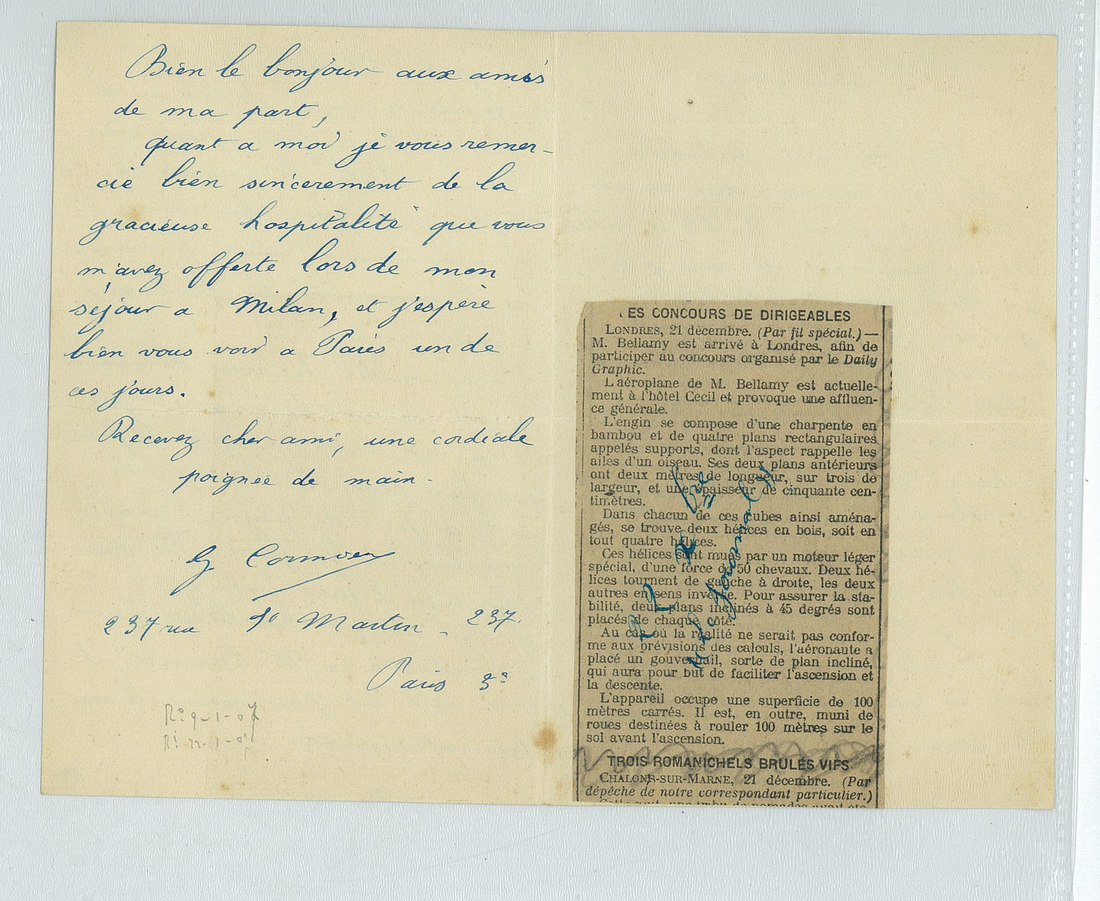 Bien le bonjour aux amis
de ma part,
quant a moi je vous remer-
cie bien sincerement de la
gracieuse hospitalité que vous
m'avez offerte lors de mon
séjour a Milan, et j'espère
bien vous voir a Paris un de
ces jours.
Recevez cher ami, une cordiale
poignée de main.
237 rue St Martin - 237.
Paris 3e
Ro 9-1-07
ES CONCOURS DE DIRIGEABLES
LONDRES, 21 décembre. (Par fil spécial.) —
M. Bellamy est arrivé à Londres, afin de
participer au concours organisé par le Daily
Graphic.
L'aéroplane de M. Bellamy est actuelle-
ment à l'hôtel Cecil et provoque une affluen-
ce générale.
L'engin se compose d'une charpente en
bambou et de quatre plans rectangulaires
appelés supports, dont l'aspect rappelle les
ailes d'un oiseau. Ses deux plans antérieurs
ont deux mètres de longueur, sur trois de
largeur, et une épaisseur de cinquante cen-
timètres.
Dans chacun de ces cubes ainsi aména-
gés, se trouve deux hélices en bois, soit en
tout quatre hélices.
Ces hélices sont mues par un moteur léger
spécial, d'une force de 50 chevaux. Deux hé-
lices tournent de gauche à droite, les deux
autres en sens inverse. Pour assurer la sta-
bilité, deux plans inclinés à 45 degrés sont
placés de chaque côté.
Au cas où la réalité ne serait pas confor-
me aux prévisions des calculs, l'aéronaute a
placé un gouvernail, sorte de plan incliné,
qui aura pour but de faciliter l'ascension et
la descente.
L'appareil occupe une superficie de 100
mètres carrés. Il est, en outre, muni de
roues destinées à rouler 100 mètres sur le
sol avant l'ascension.
TROIS ROMANICHELS BRULÉS VIFS
CHALONS-SUR-MARNE, 21 décembre. (Par
dépêche de notre correspondant particulier.)
22 Xbre
Le Journal